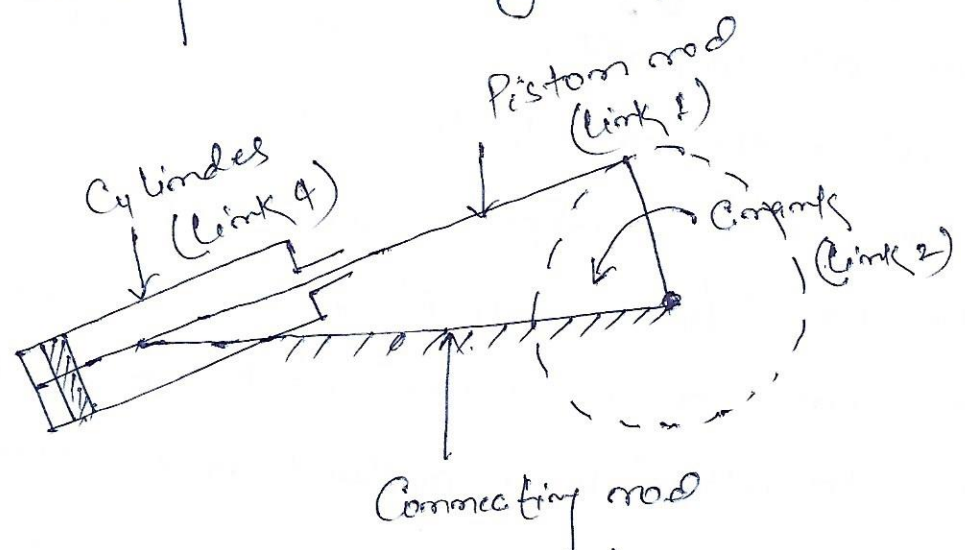 Piston rod
(Link 1)
Cylinder
(Link 4)
Crank
(Link 2)
Connecting rod